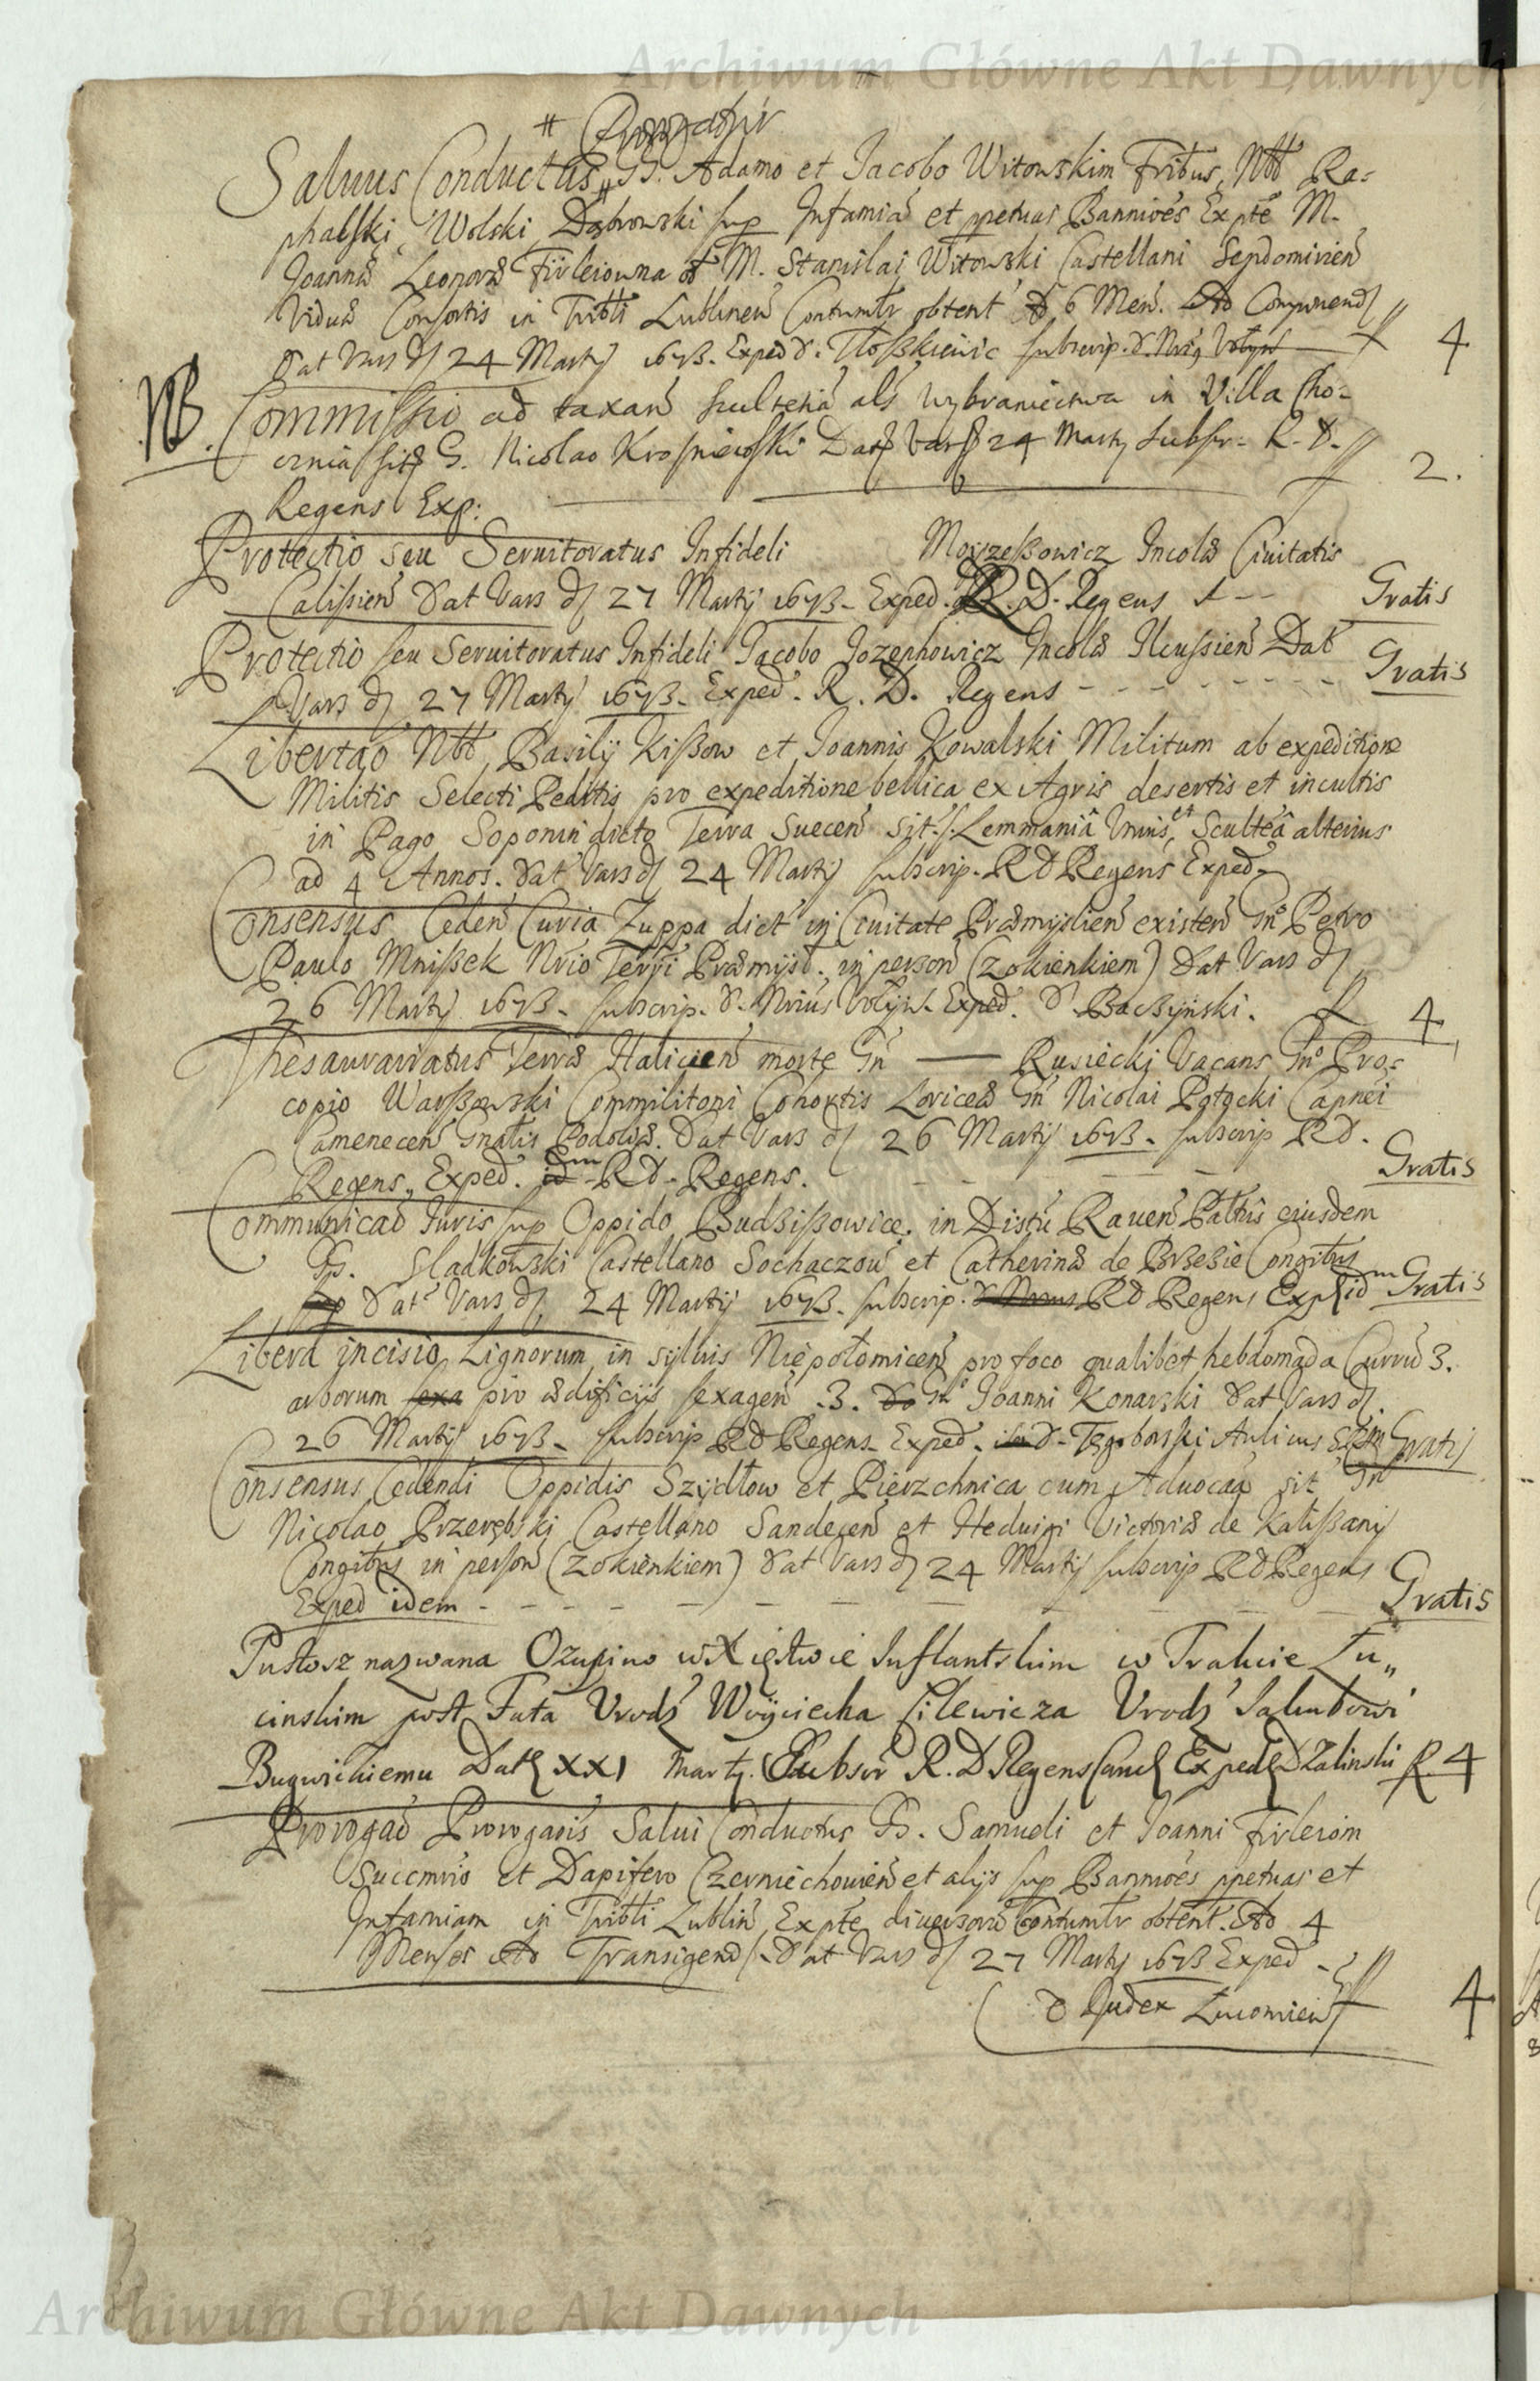 Archiwum Główne Akt Dawnych
Salvus Conductus GG. Adamo et Jacobo Witowskim Fribus, Nbb Ra=
phalski, Wolski, Dąbrowski sup Infamiā et ppetuas Bannioēs Expte M.
Joannæ Leonoræ Firleiowna M. Stanislai Witowski Castellani Sendomirien
Viduæ Consortis in Tribli Lublinen Contumtr obtent 6 Men. Ad Componend
Dat Vars d 24 Martij 1673. Exped D. Tłoszkiewic subscrip. D. Volyn 4
NB. Commissio ad taxan scultetia als Wybraniectwa in Villa Cho=
cznia sitæ G. Nicolao Krosniewski Dat Vars 24 Martij Subscr. R. D. 2.
Regens Exp:
Protectio seu Servitoratus Infideli Moyzeszowicz Incolæ Civitatis
Calissien Dat Vars d 27 Martij 1673. Exped. R. D. Regens Gratis
Protectio seu Servitoratus Infideli Jacobo Jozephowicz Incolæ Ilcussien Dat Gratis
Vars d 27 Martij 1673. Exped. R. D. Regens
Libertao Nbb Basilij Kiszow et Joannis Kowalski Militum ab expeditione
Militis Selecti Peditis pro expeditione bellica ex Agris desertis et incultis
in Pago Soponin dicto Terra Suecen sit. Lemmaniâ Unius et Scultéa alterius
ad 4 Annos. Dat Vars d 24 Martij subscrip. RD Regens Exped.
Consensus Ceden Curia Zuppa dict in Civitate Præmyslien existen Gno Petro
Paulo Mniszek Nrio Terri Præmysl. in person (z okienkiem) Dat Vars d
26 Martij 1673. subscrip. D. Nrius Volyn. Exped. D. Baczyński. 4
Thesaurariatus Terræ Halicien morte Gn — Rusiecki Vacans Gno Pro=
copio Warszowski Commilitoni Cohortis Loriceæ Gn Nicolai Potocki Capnei
Camenecen Gnalis Podoliæ. Dat Vars d 26 Martij 1673. subscrip RD.
Regens, Exped. idem RD. Regens. Gratis
Communicao Juris sup Oppido Budziszowice in Distu Raven Paltus eiusdem
GG. Gladkowski Castellano Sochaczou et Catherinæ de Brzezie Congibus
Dat Vars d 24 Martij 1673. subscrip. RD Regens Exp idm Gratis
Libera incisio Lignorum in sylvis Niepołomicen pro foco qualibet hebdomada Curru 3.
arborum pro ædificijs sexagen .3. Gno Joanni Konarski Dat Vars d.
26 Martij 1673. subscrip RD Regens Exped. D. Tęgoborski Aulicus Gratis
Consensus Cedendi Oppidis Szydłow et Pierzchnica cum Advocao sit Gn
Nicolao Przerębski Castellano Sandecen et Heduigi Victoriæ de Kaliszany
Congibus in person (z okienkiem) Dat Vars d 24 Martij subscrip RD Regens
Exped idem Gratis
Pustosz nazwana Ozupino w Xięstwie Inflantskim w Trakcie Lu„
cinskim post Fata Urodz Woyciecha Cilewicza Urodz Jakubowi
Bugwickiemu Dat XXI Martij. Subscr R. D Regens Canc Exped D Zalinski R. 4
Prorogao Prorogaois Salui Conductus GG. Samueli et Joanni Firleiom
Succmrio et Dapifero Czerniechouien et alijs sup Bannioēs ppetuas et
Infamiam in Tribli Lublin Expte diuersoru Contumtr obtent. Ad 4
Menses Ad Transigend Dat Vars d 27 Martij 1673 Exped
D Judex Zucomien 4
Archiwum Główne Akt Dawnych